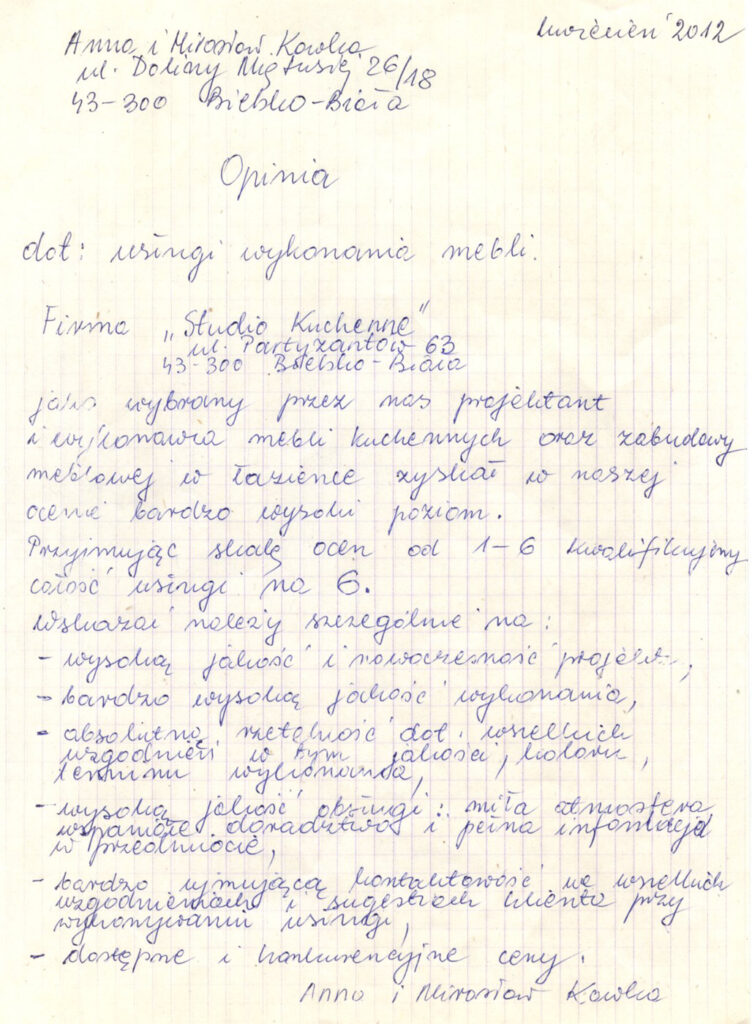 kwiecień 2012
Anna i Mirosław Kawka
ul. Doliny Miętusiej 26/18
43-300 Bielsko-Biała
Opinia
dot: usługi wykonania mebli.
Firma „Studio Kuchenne"
ul. Partyzantów 63
43-300 Bielsko-Biała
jako wybrany przez nas projektant
i wykonawca mebli kuchennych oraz zabudowy
meblowej w łazience zyskał w naszej
ocenie bardzo wysoki poziom.
Przyjmując skalę ocen od 1-6 kwalifikujemy
całość usługi na 6.
Wskazać należy szczególnie na:
- wysoką jakość i nowoczesność projektu,
- bardzo wysoką jakość wykonania,
- absolutną rzetelność dot. wszelkich
uzgodnień w tym jakości, koloru,
terminu wykonania,
- wysoką jakość obsługi: miła atmosfera
wspaniałe doradztwo i pełna informacja
w przedmiocie,
- bardzo ujmującą kontaktowość we wszelkich
uzgodnieniach i sugestiach klienta przy
wykonywaniu usługi,
- dostępne i konkurencyjne ceny.
Anna i Mirosław Kawka